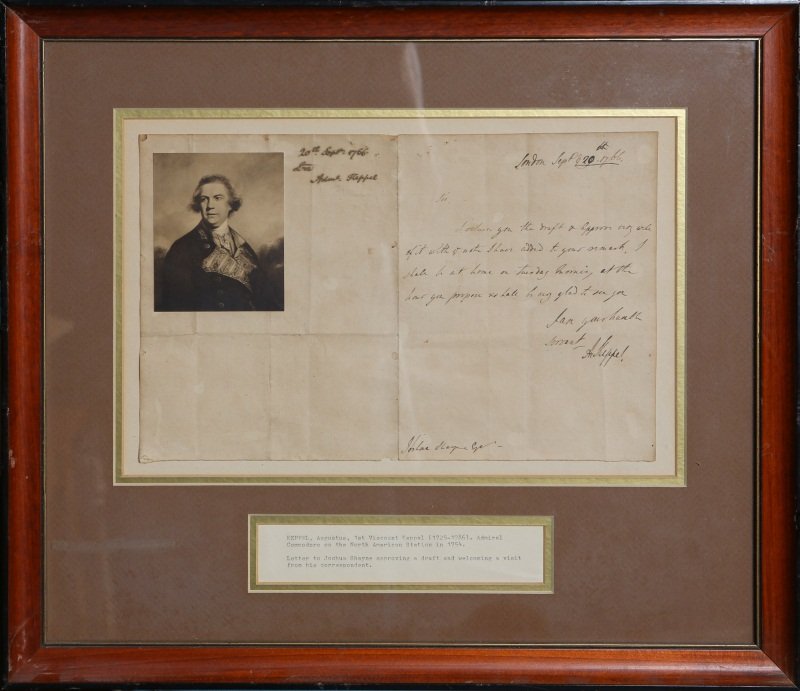 20th Sept. 1766
from
Adml. Keppel
London Sept ye 20th 1766
Sir
I return you the draft & approve very much
of it with ye note I have added to your remark, I
shall be at home on Tuesday Morning at the
hour you propose & shall be very glad to see you
I am your humble
servant
A Keppel.
Joshua Esqr
KEPPEL, Augustus, 1st Viscount Keppel (1725-1786). Admiral
Commodore on the North American Station in 1754.
Letter to Joshua Sharpe approving a draft and welcoming a visit
from his correspondent.